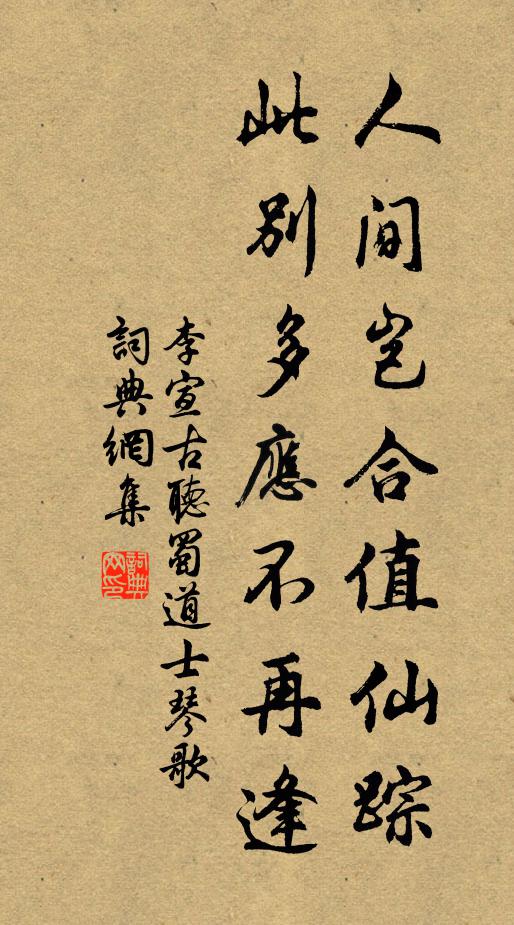 人間岂合值仙踪
此別多應不再逢
李宣古聽蜀道士琴歌
詞典網集
詞典網印